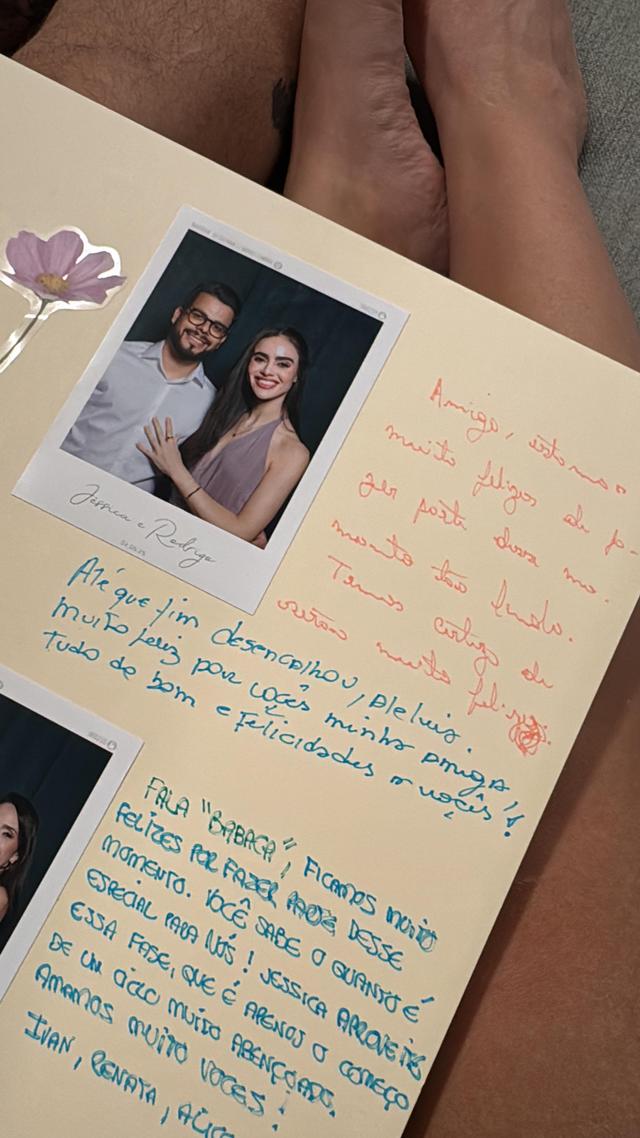 Jéssica e Rodrigo
Amiga, estamos
muito felizes de po-
der participar desse mo-
mento tão lindo.
Temos certeza que
serão muito felizes.
Até que fim desencalhou, Aleluia.
Muito feliz por vocês minha amiga!
Tudo de bom e Felicidades a vocês!
FALA "BABACA", FICAMOS MUITO
FELIZES POR FAZER PARTE DESSE
MOMENTO. VOCÊ SABE O QUANTO É
ESPECIAL PARA NÓS! JESSICA APROVEITE
ESSA FASE, QUE É APENAS O COMEÇO
DE UM CICLO MUITO ABENÇOADO.
AMAMOS MUITO VOCES!
IVAN, RENATA,